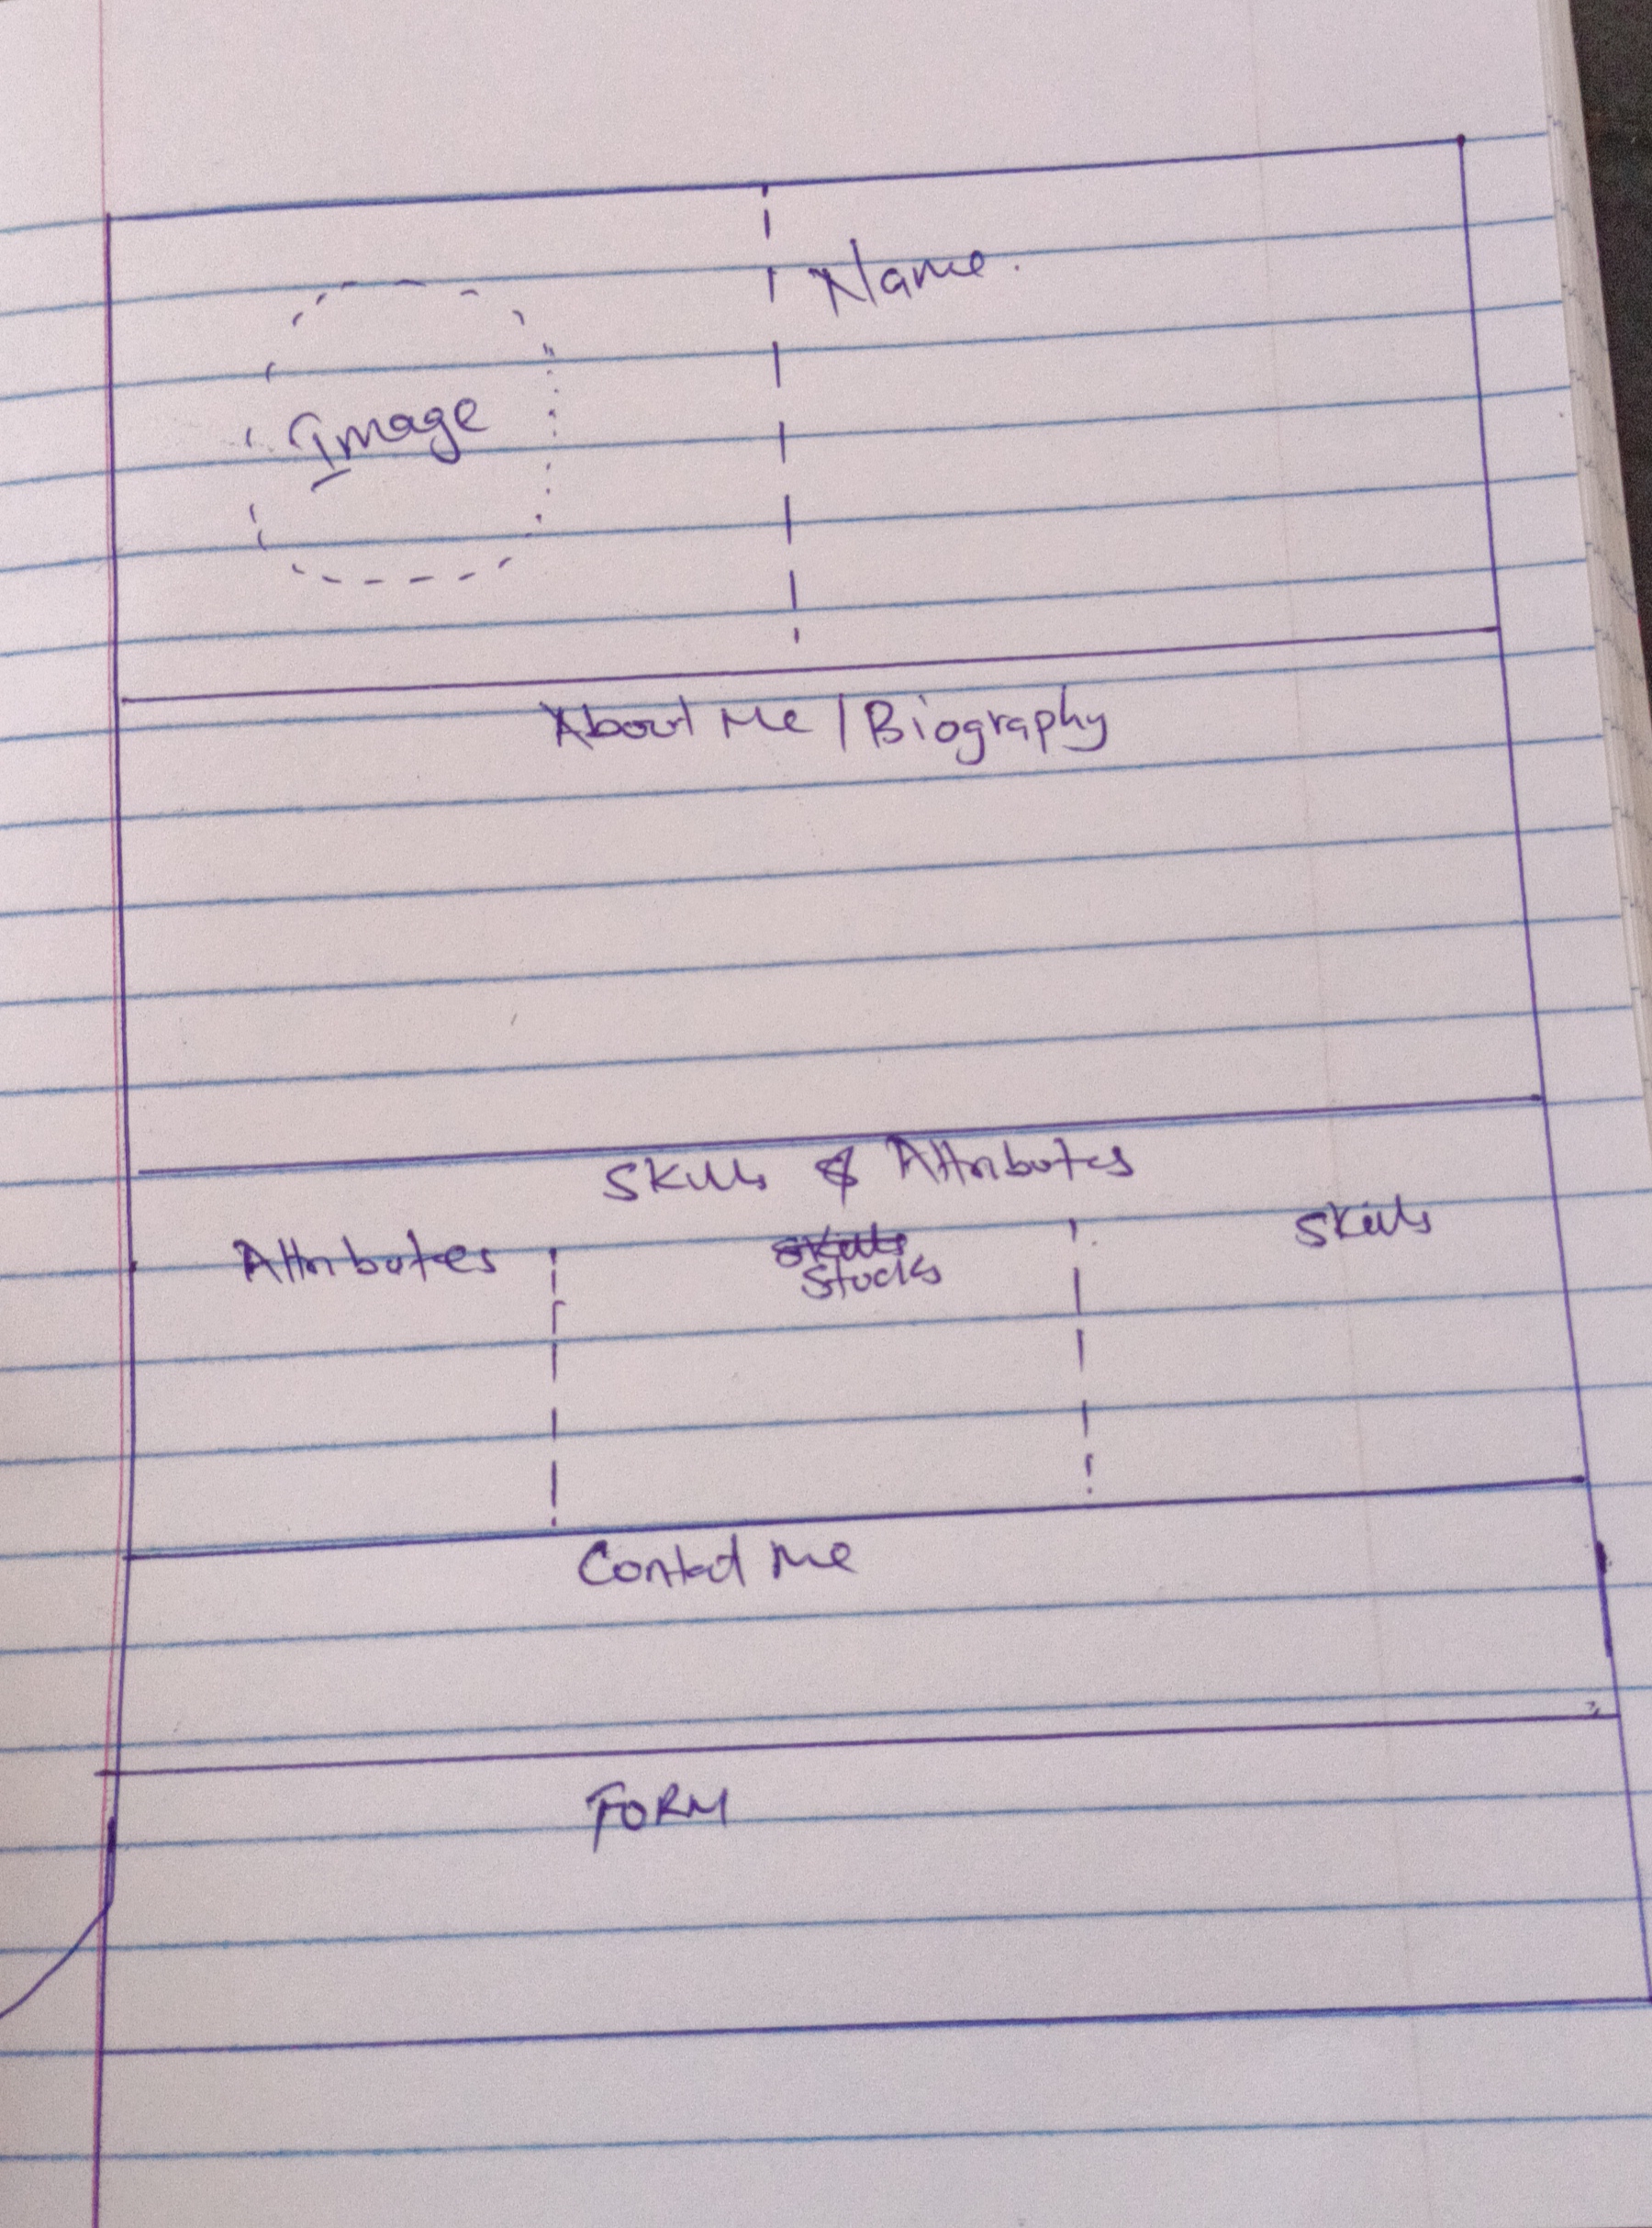 Name.
Image
About Me / Biography
Skills & Attributes
Attributes
Skills
Stacks
Skills
Contact Me
FORM